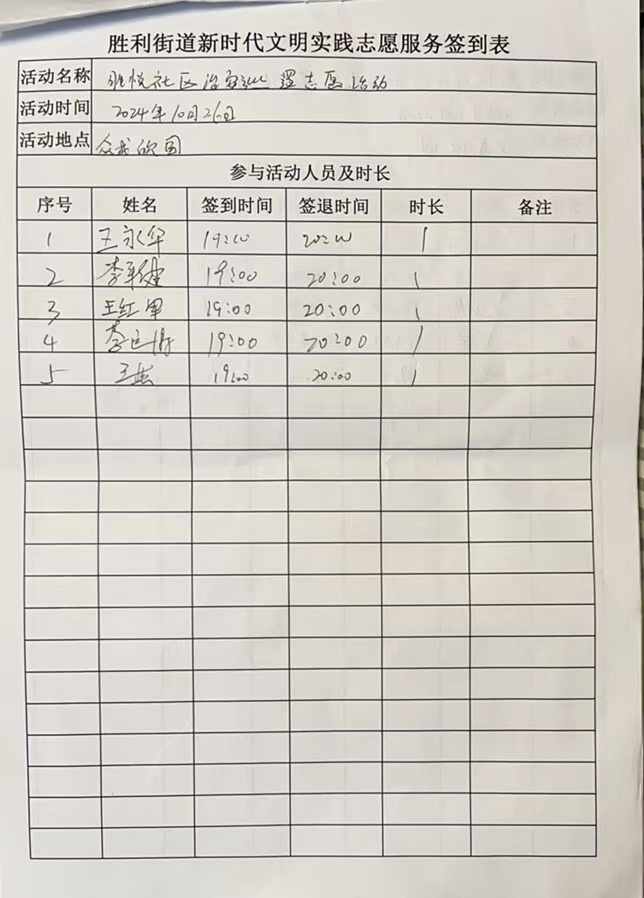 胜利街道新时代文明实践志愿服务签到表
活动名称 胜悦社区治安巡逻志愿活动
活动时间 2024年10月26日
活动地点 众成欣园
参与活动人员及时长
序号 姓名 签到时间 签退时间 时长 备注
1 王永华 19:00 20:00 1
2 李秉健 19:00 20:00 1
3 王红军 19:00 20:00 1
4 李 19:00 20:00 1
5 王燕 19:00 20:00 1